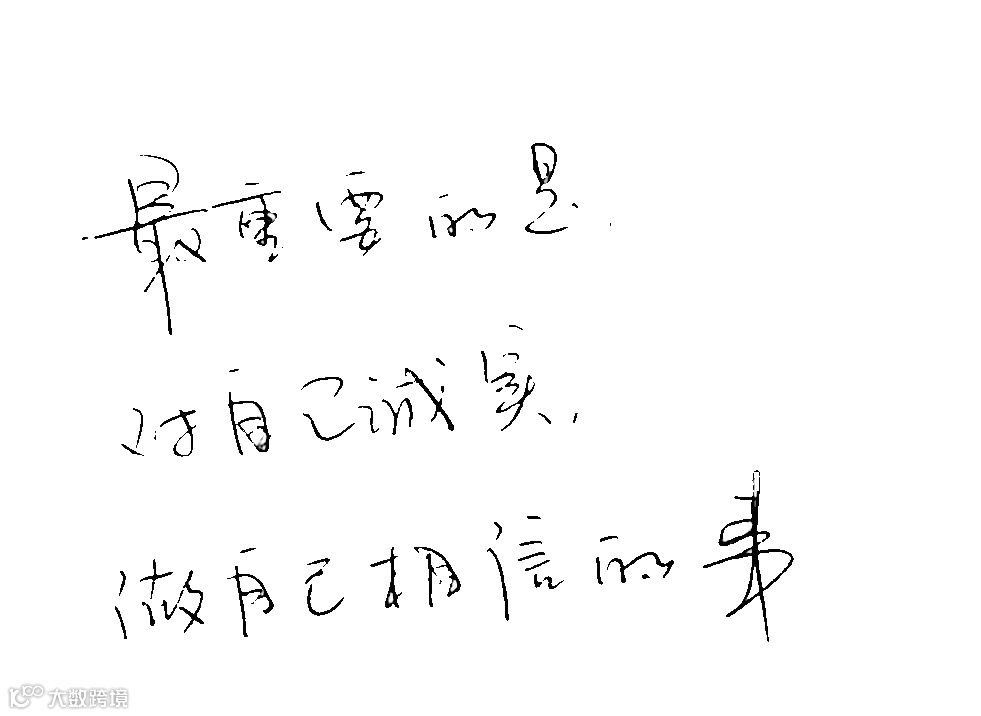 最重要的是
对自己诚实,
做自己相信的事
大数跨境